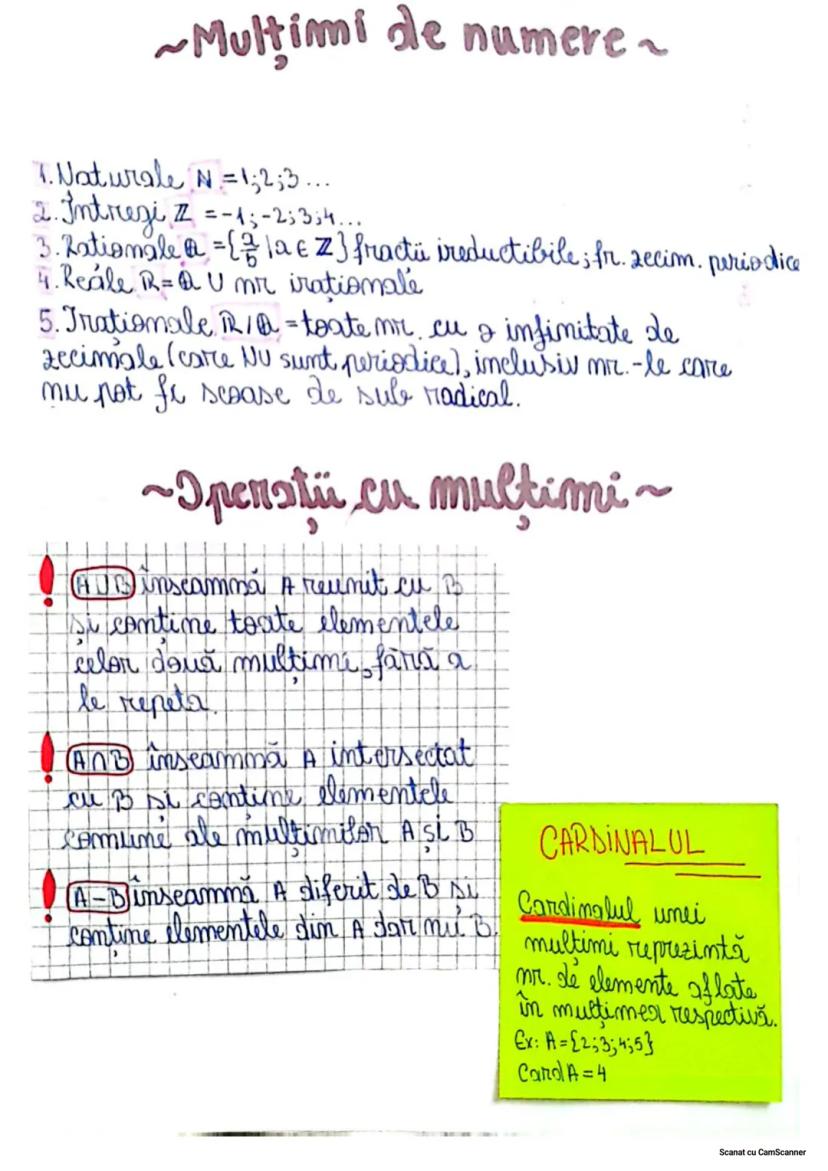 ~Mulțimi de numere~
1. Naturale N = 1;2;3...
2. Întregi ℤ = -1; -2; 3; 4...
3. Raționale ℚ = {a/b | a ∈ ℤ} fracții ireductibile; fr. zecim. periodice
4. Reale ℝ = ℚ ∪ nr iraționale
5. Iraționale ℝ/ℚ = toate nr. cu o infinitate de
zecimale (care NU sunt periodice), inclusiv nr.-le care
nu pot fi scoase de sub radical.
~Operații cu mulțimi~
! A∪B înseamnă A reunit cu B
și conține toate elementele
celor două mulțimi, fără a
le repeta.
! A∩B înseamnă A intersectat
cu B și conține elementele
comune ale mulțimilor A și B
! A-B înseamnă A diferit de B și
conține elementele din A dar nu B.
CARDINALUL
Cardinalul unei
mulțimi reprezintă
nr. de elemente aflate
în mulțimea respectivă.
Ex: A={2;3;4;5}
Card A = 4
Scanat cu CamScanner